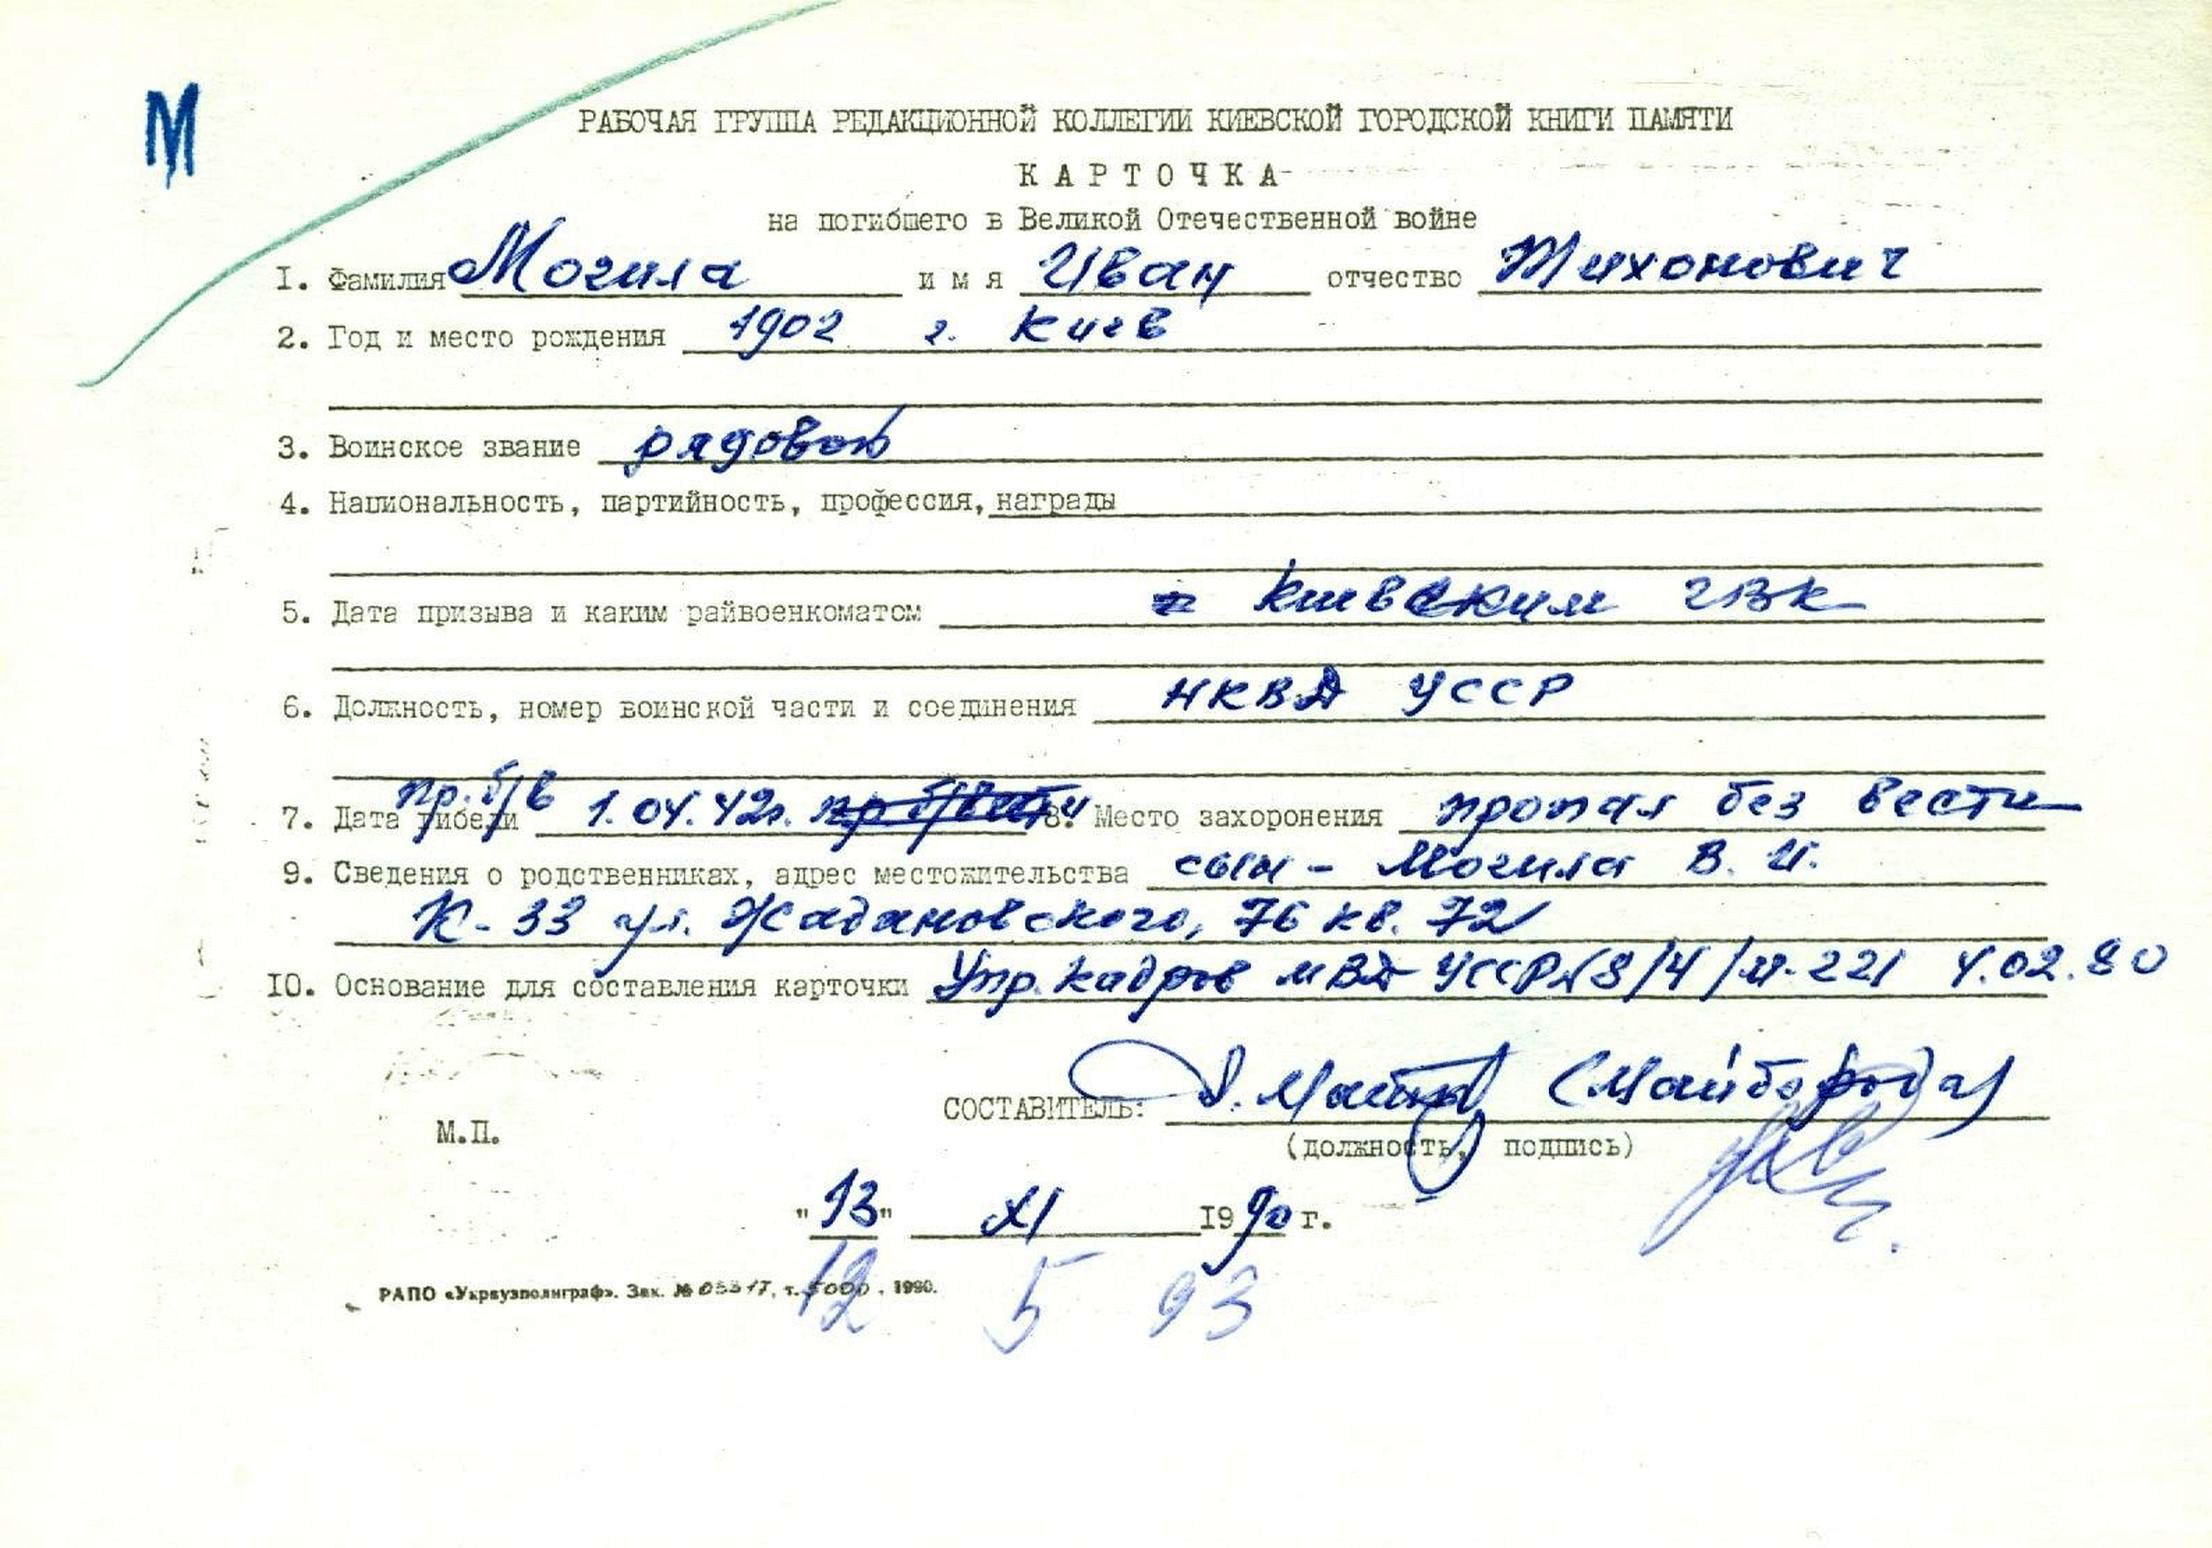 М
РАБОЧАЯ ГРУППА РЕДАКЦИОННОЙ КОЛЛЕГИИ КИЕВСКОЙ ГОРОДСКОЙ КНИГИ ПАМЯТИ
КАРТОЧКА
на погибшего в Великой Отечественной войне
1. Фамилия Могила имя Иван отчество Тихонович
2. Год и место рождения 1902 г. Киев
3. Воинское звание рядовой
4. Национальность, партийность, профессия, награды
5. Дата призыва и каким райвоенкоматом Киевским ГВК
6. Должность, номер воинской части и соединения НКВД УССР
пр. б/в
7. Дата гибели 1.04.42г. 8. Место захоронения пропал без вести
9. Сведения о родственниках, адрес местожительства сын - Могила В. И.
К-33 ул. Жадановского, 76 кв. 72
10. Основание для составления карточки Упр. кадров МВД УССР 4.02.80
СОСТАВИТЕЛЬ: (Майборода)
М.П.
(должность, подпись)
"13" XI 1990 г.
12 5 93
РАПО «Укрвузполиграф». Зак. № т. 5000. 1990.